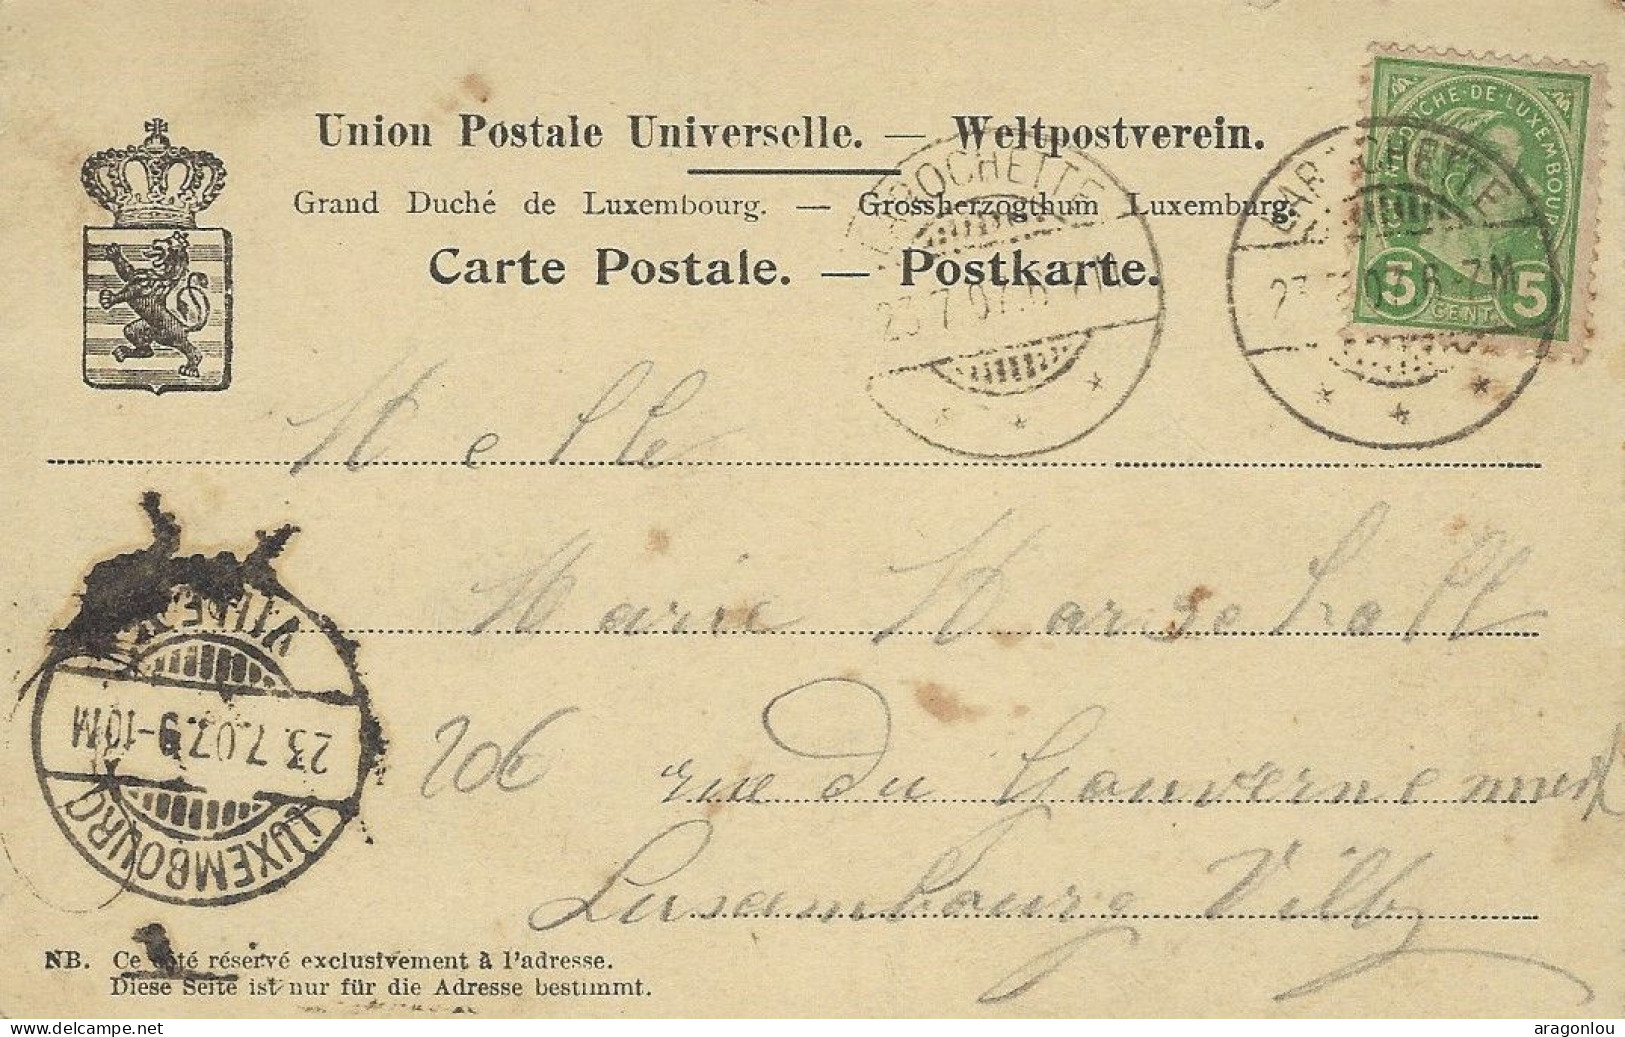 Union Postale Universelle. — Weltpostverein.
Grand Duché de Luxembourg. — Grossherzogthum Luxemburg.
Carte Postale. — Postkarte.
GRAND DUCHÉ-DE-LUXEMBOURG
5 CENT. 5
LAROCHETTE
23.7.07.6-7M
LAROCHETTE
23.7.07.6-7M
Melle
Marie Marschall
20c rue du Gouvernement
Luxembourg Ville
LUXEMBOURG VILLE
23.7.07.9-10M
NB. Ce côté réservé exclusivement à l'adresse.
Diese Seite ist nur für die Adresse bestimmt.
aragonlou